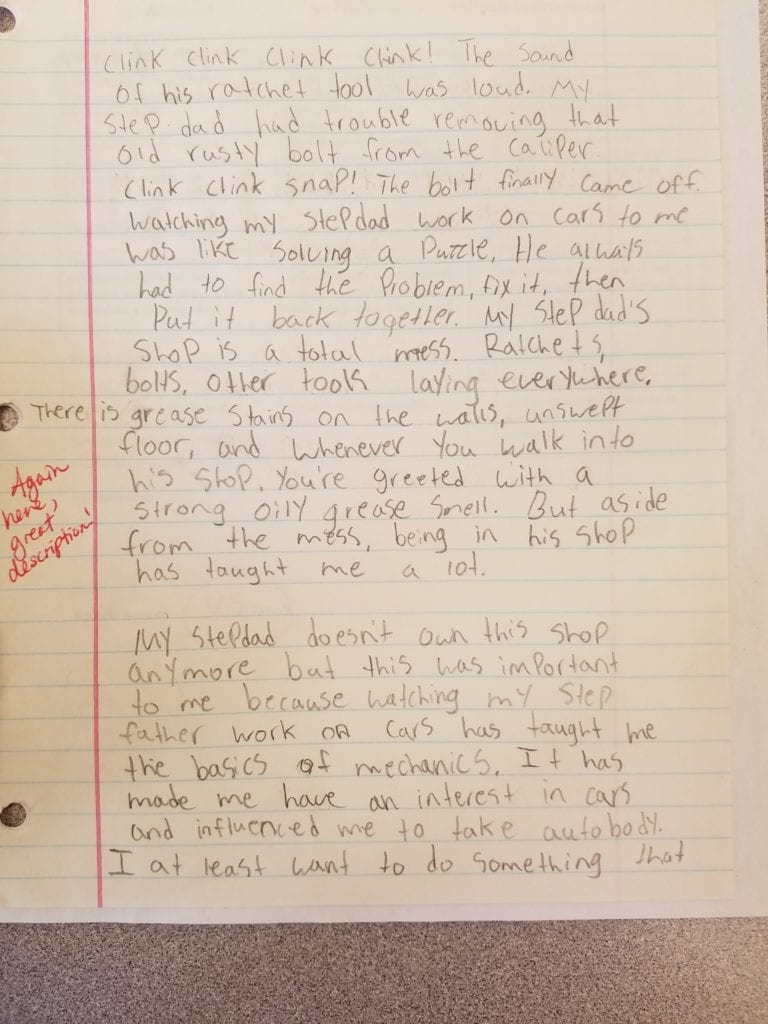 Clink Clink Clink Clink! The sound
of his ratchet tool was loud. My
step dad had trouble removing that
old rusty bolt from the caliper.
Clink Clink snap! The bolt finally came off.
Watching my stepdad work on cars to me
was like solving a puzzle, He always
had to find the problem, fix it, then
put it back together. My step dad's
shop is a total mess. Ratchets,
bolts, other tools laying everywhere.
There is grease stains on the walls, unswept
floor, and whenever you walk into
his shop. You're greeted with a
strong oily grease smell. But aside
from the mess, being in his shop
has taught me a lot.
Again
here,
great
description!
My stepdad doesn't own this shop
anymore but this was important
to me because watching my step
father work on cars has taught me
the basics of mechanics. It has
made me have an interest in cars
and influenced me to take autobody.
I at least want to do something that